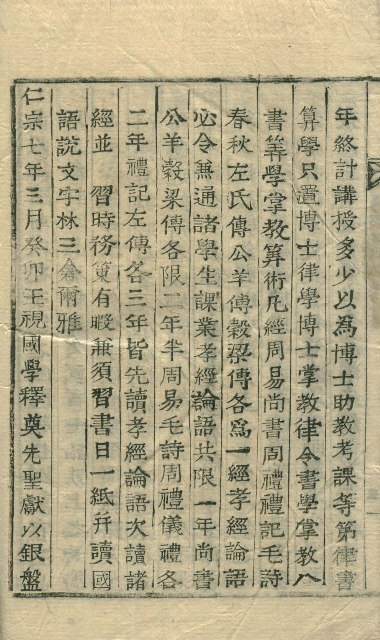 年終計講授多少以為博士助教考課等第律書
算學只置博士律學博士掌教律令書學掌教八
書筭學掌教筭術凡經周易尚書周禮禮記毛詩
春秋左氏傳公羊傳穀梁傳各爲一經孝經論語
必令兼通諸學生課業孝經論語共限一年尚書
公羊穀梁傳各限二年半周易毛詩周禮儀禮各
二年禮記左傳各三年皆先讀孝經論語次讀諸
經並 習時務策有暇兼須習書日一紙幷讀國
語說文字林三倉爾雅
仁宗七年三月癸卯王視國學釋奠先聖獻以銀盤